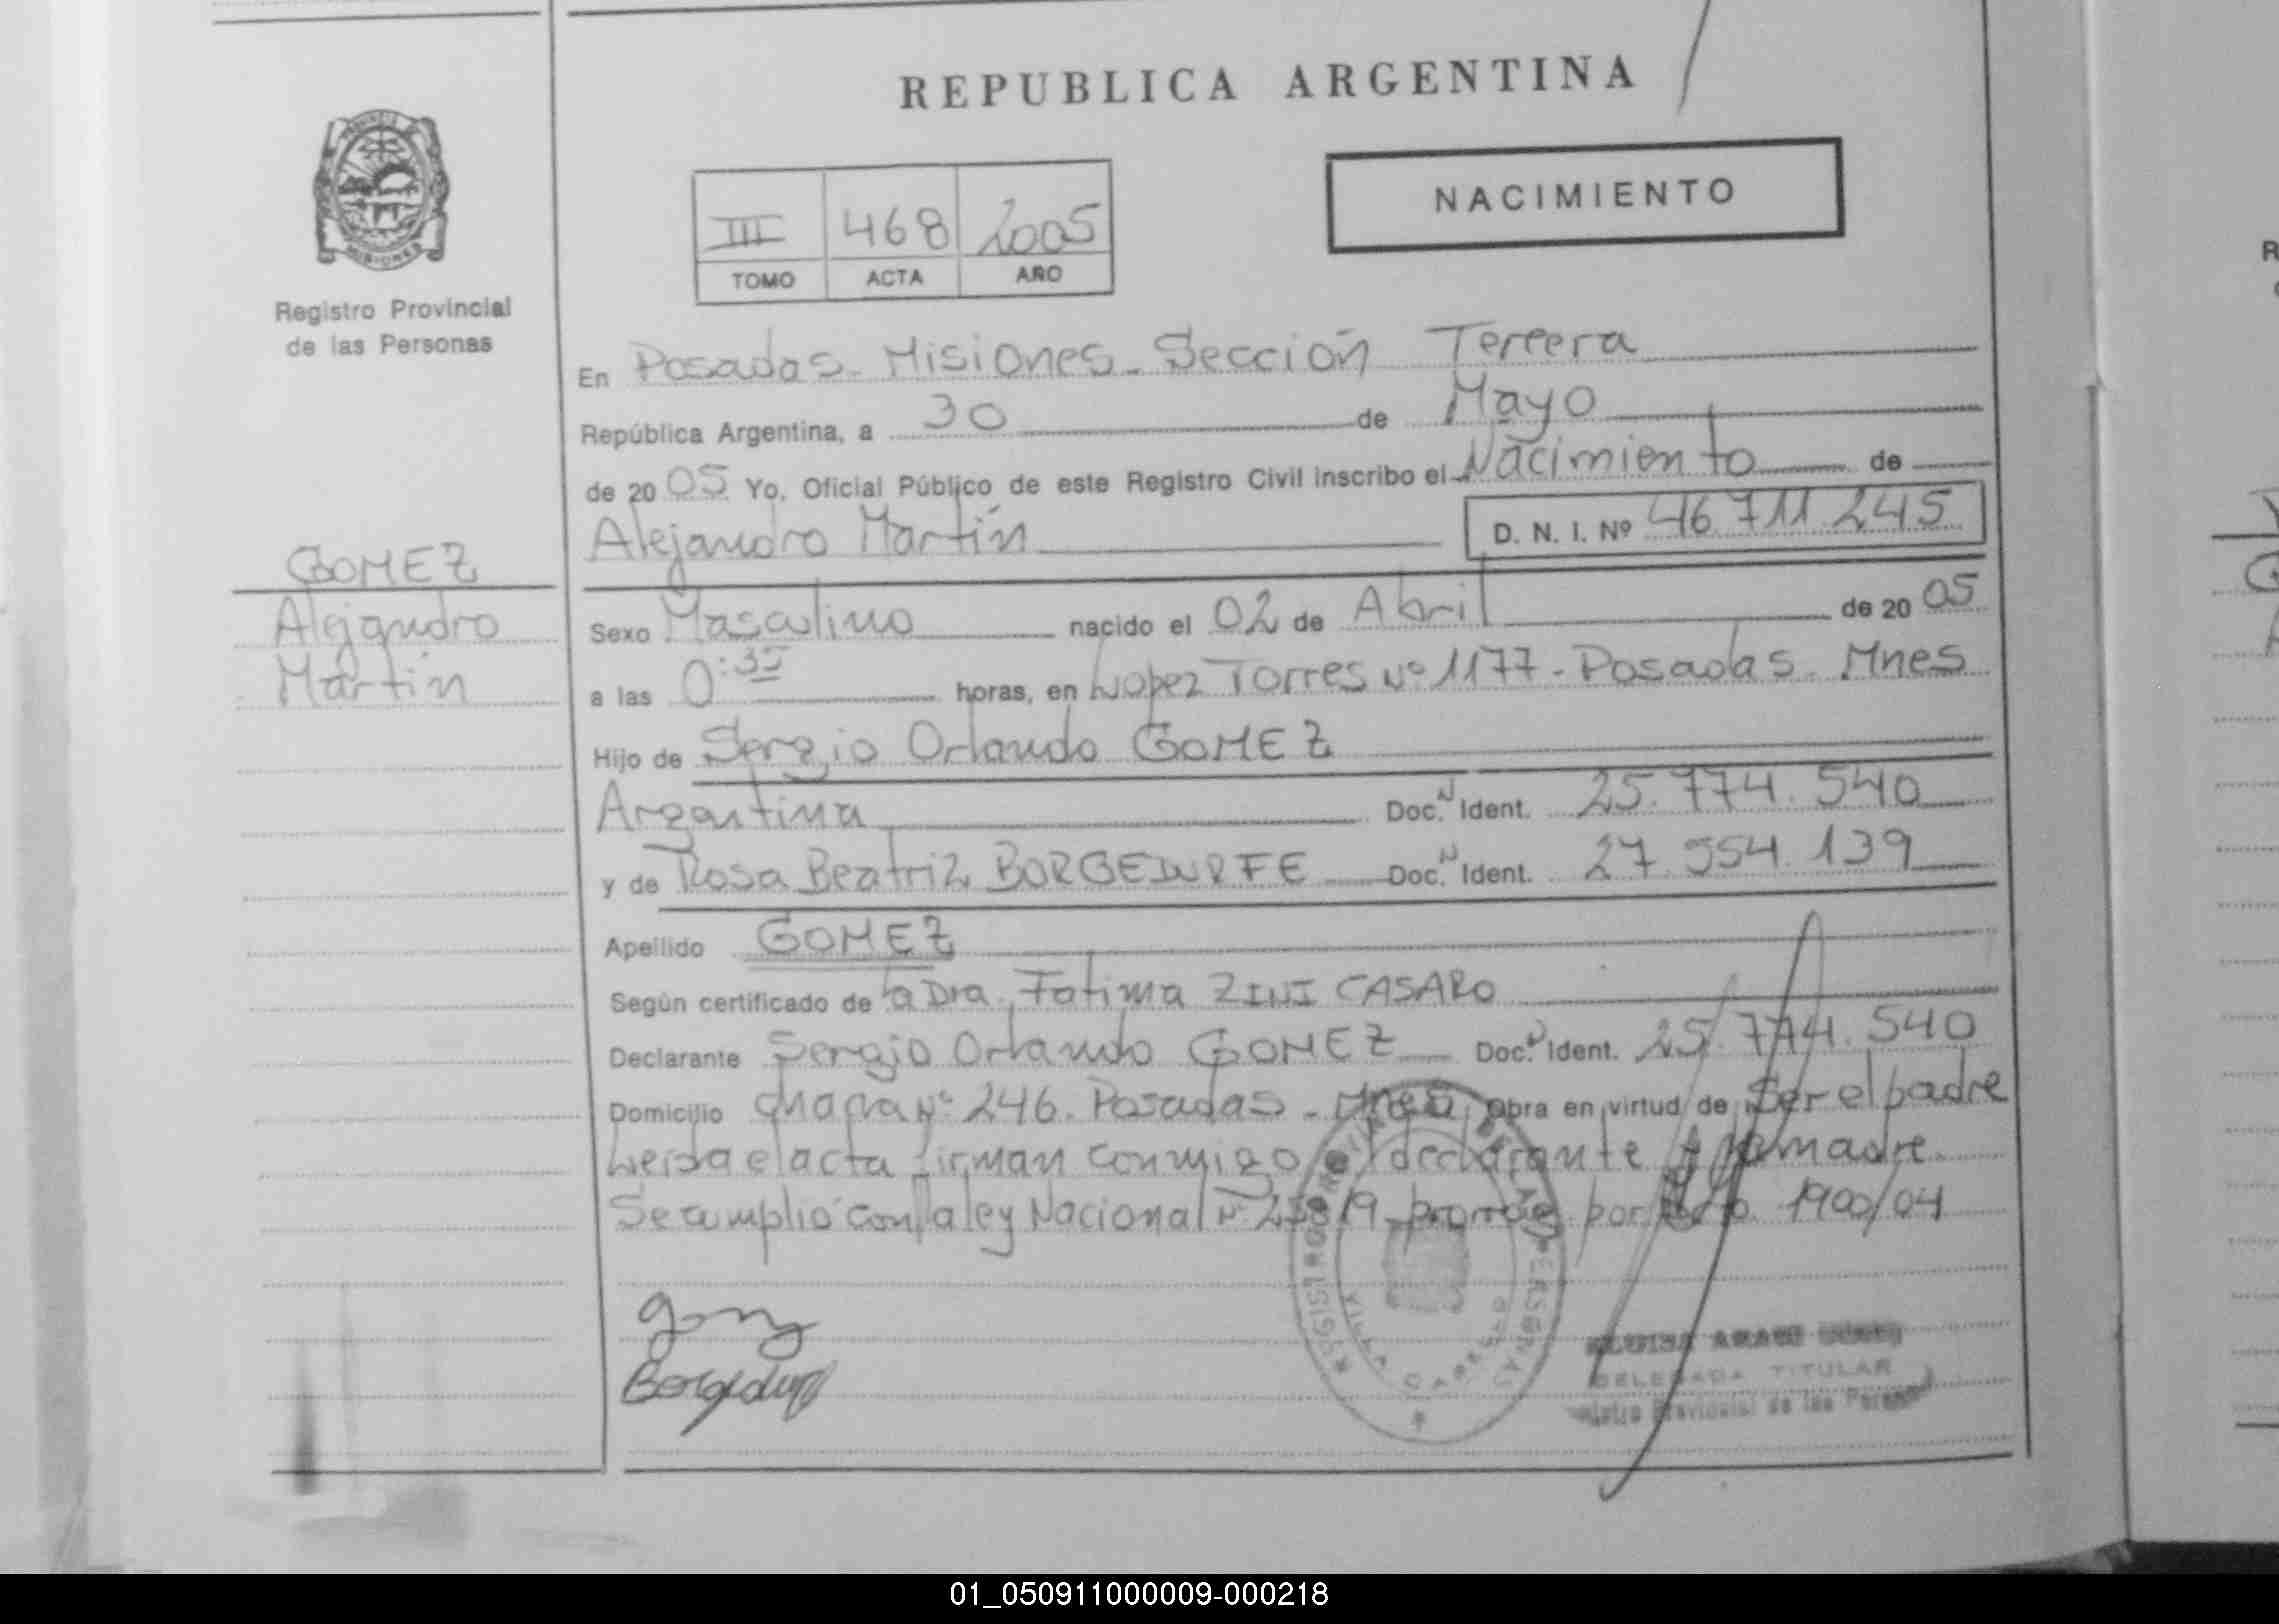 REPUBLICA ARGENTINA
PROVINCIA DE
MISIONES
Registro Provincial
de las Personas
NACIMIENTO
III 468 2005
TOMO ACTA AÑO
En Posadas - Misiones - Sección Tercera
República Argentina, a 30 de Mayo
de 20 05 Yo, Oficial Público de este Registro Civil inscribo el Nacimiento de
Alejandro Martín D. N. I. Nº 46.711.245
GOMEZ
Alejandro
Martín
Sexo Masculino nacido el 02 de Abril de 20 05
a las 0:35 horas, en Lopez Torres Nº 1177 - Posadas - Mnes
Hijo de Sergio Orlando GOMEZ
Argentina Doc. N Ident. 25.774.540
y de Rosa Beatriz BORGEDURFE Doc. N Ident. 27.554.139
Apellido GOMEZ
Según certificado de la Dra. Fatima ZINI CASARO
Declarante Sergio Orlando GOMEZ Doc. N Ident. 25.774.540
Domicilio Nº 246. Posadas - Mnes Obra en virtud de Ser el padre
Leida el acta firman conmigo el declarante y la madre
Se cumplio con la ley Nacional Nº por 1900/04
REGISTRO PROVINCIAL DE LAS PERSONAS
VILLA CABELLO
DELEGADA TITULAR
Registro Provincial de las Personas
01_050911000009-000218